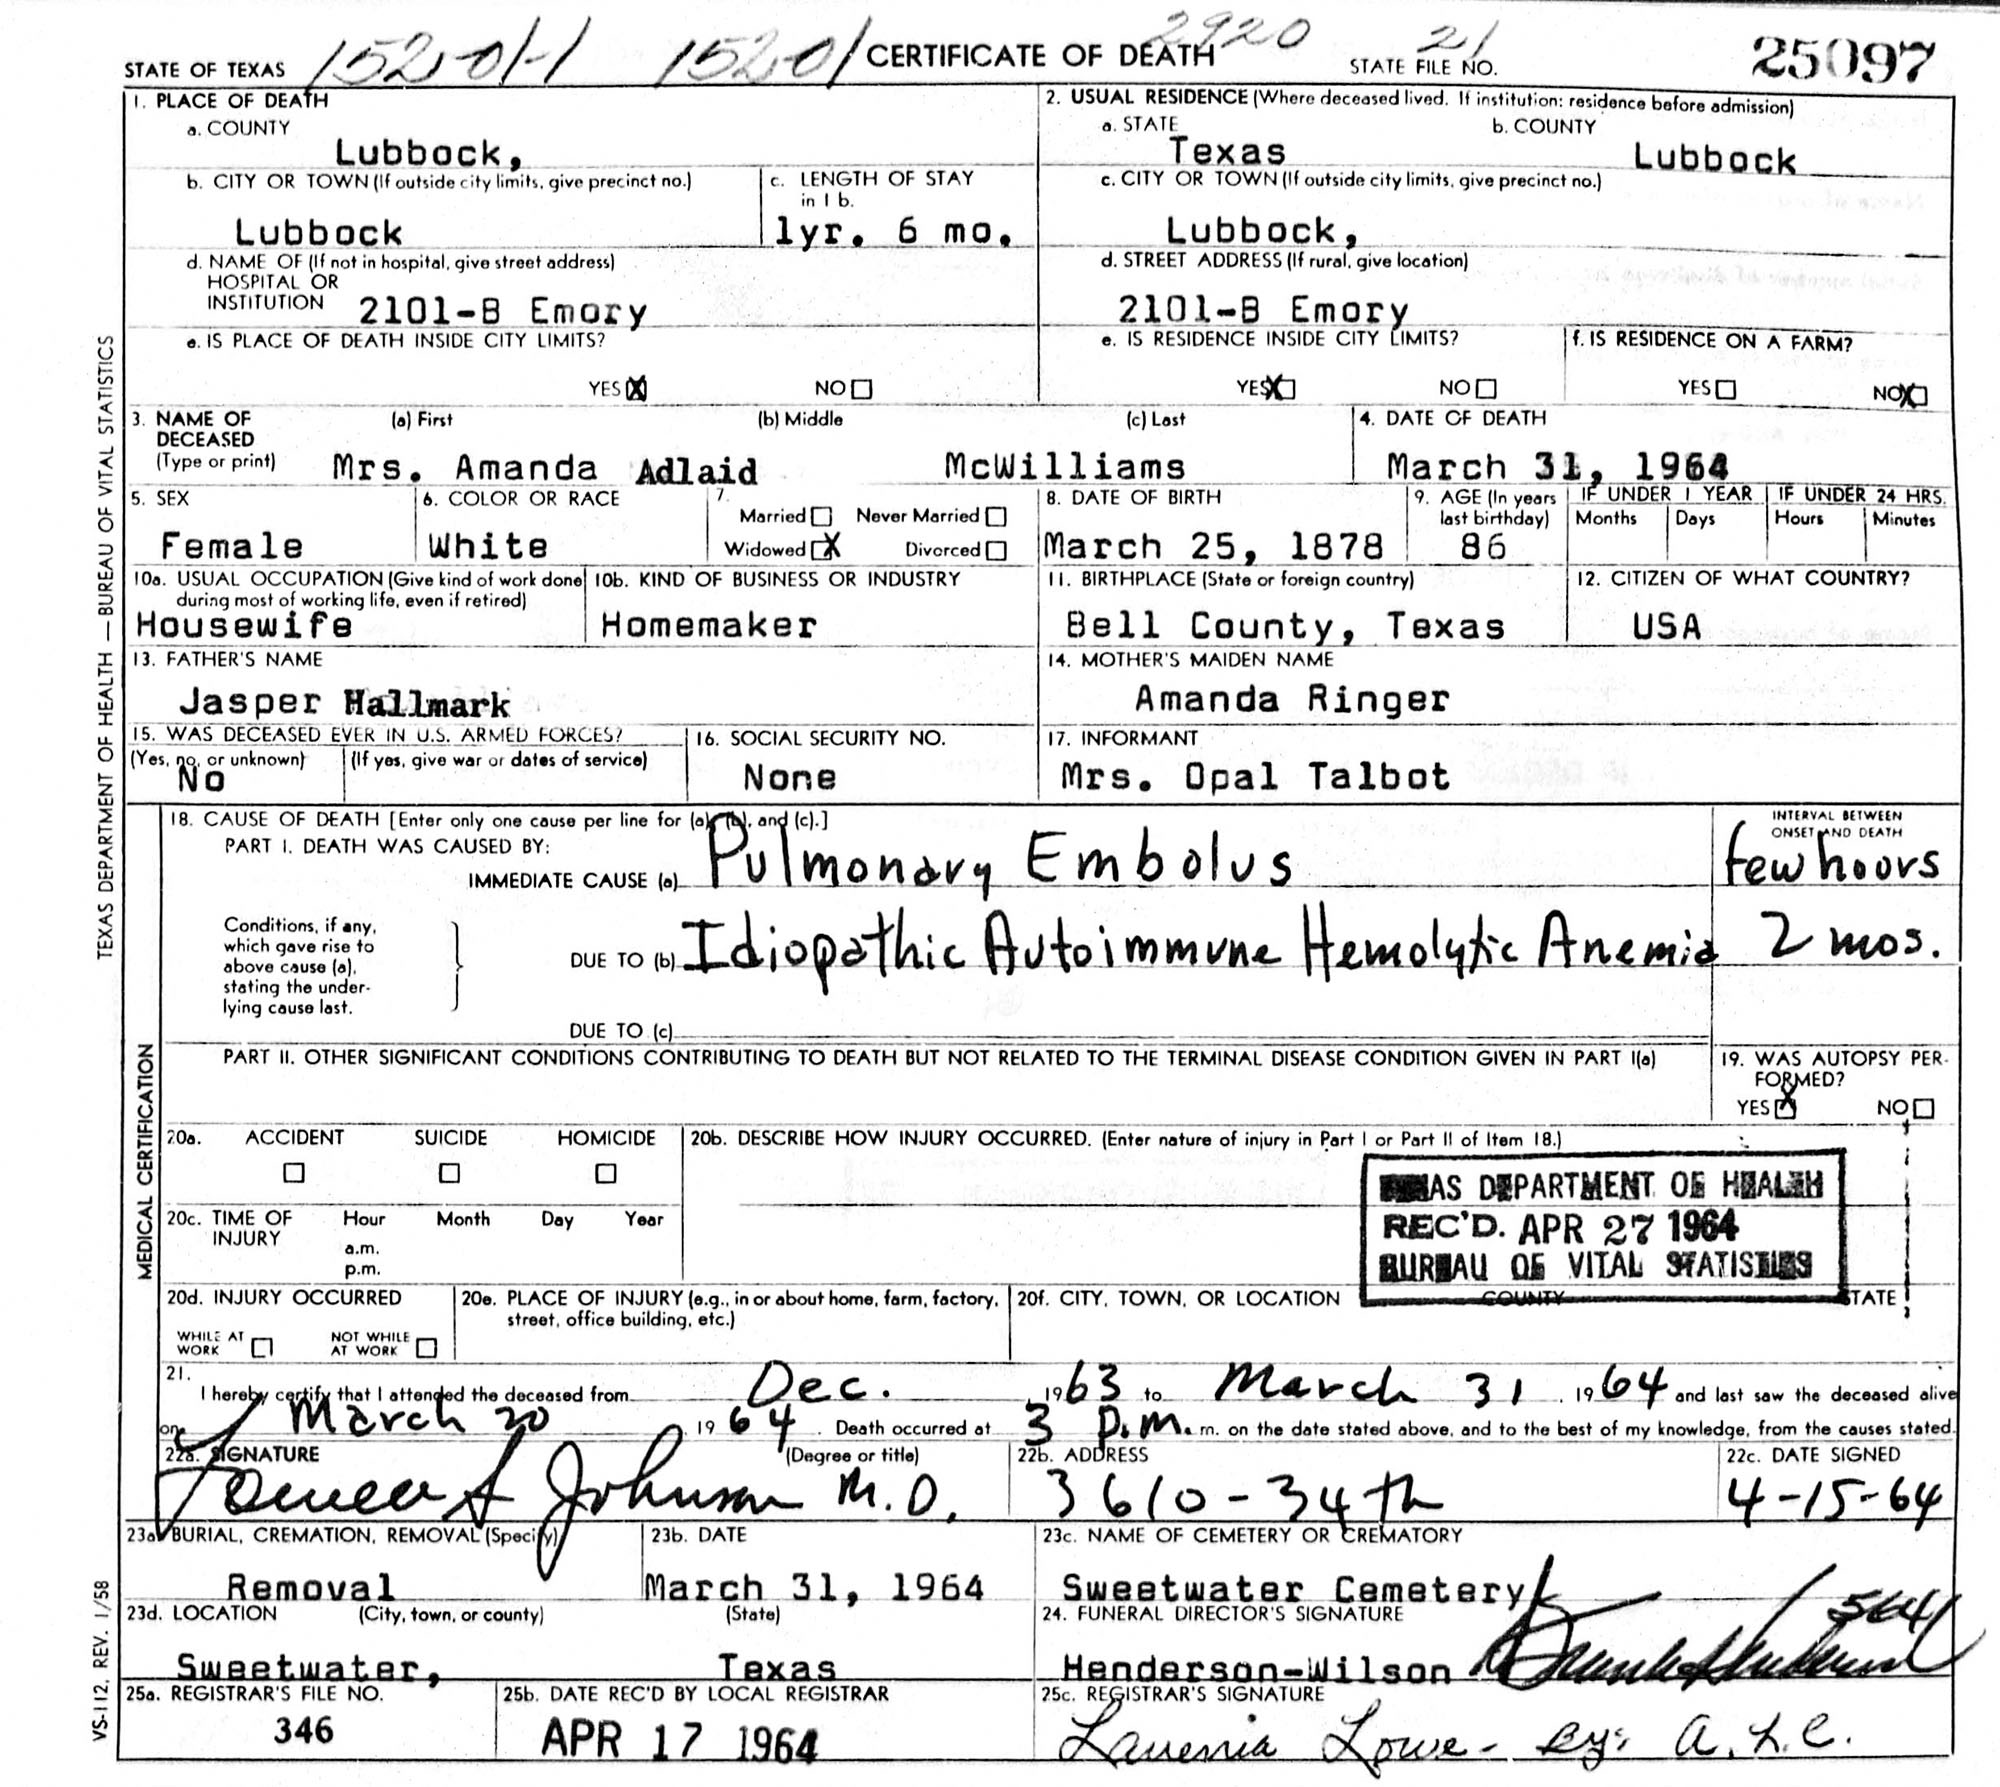 152-01-1 1520/ 2920 21
STATE OF TEXAS CERTIFICATE OF DEATH STATE FILE NO. 25097
1. PLACE OF DEATH
a. COUNTY
Lubbock,
2. USUAL RESIDENCE (Where deceased lived. If institution: residence before admission)
a. STATE b. COUNTY
Texas Lubbock
b. CITY OR TOWN (If outside city limits, give precinct no.)
Lubbock
c. LENGTH OF STAY
in 1 b.
1yr. 6 mo.
c. CITY OR TOWN (If outside city limits, give precinct no.)
Lubbock,
d. NAME OF (If not in hospital, give street address)
HOSPITAL OR
INSTITUTION 2101-B Emory
d. STREET ADDRESS (If rural, give location)
2101-B Emory
e. IS PLACE OF DEATH INSIDE CITY LIMITS?
YES X NO
e. IS RESIDENCE INSIDE CITY LIMITS?
YES X NO
f. IS RESIDENCE ON A FARM?
YES NO X
3. NAME OF (a) First (b) Middle (c) Last
DECEASED
(Type or print) Mrs. Amanda Adlaid McWilliams
4. DATE OF DEATH
March 31, 1964
5. SEX
Female
6. COLOR OR RACE
White
7.
Married Never Married
Widowed X Divorced
8. DATE OF BIRTH
March 25, 1878
9. AGE (In years
last birthday)
86
IF UNDER 1 YEAR IF UNDER 24 HRS.
Months Days Hours Minutes
10a. USUAL OCCUPATION (Give kind of work done
during most of working life, even if retired)
Housewife
10b. KIND OF BUSINESS OR INDUSTRY
Homemaker
11. BIRTHPLACE (State or foreign country)
Bell County, Texas
12. CITIZEN OF WHAT COUNTRY?
USA
13. FATHER'S NAME
Jasper Hallmark
14. MOTHER'S MAIDEN NAME
Amanda Ringer
15. WAS DECEASED EVER IN U.S. ARMED FORCES?
(Yes, no, or unknown) (If yes, give war or dates of service)
No
16. SOCIAL SECURITY NO.
None
17. INFORMANT
Mrs. Opal Talbot
18. CAUSE OF DEATH [Enter only one cause per line for (a), (b), and (c).]
PART I. DEATH WAS CAUSED BY:
IMMEDIATE CAUSE (a) Pulmonary Embolus
INTERVAL BETWEEN
ONSET AND DEATH
few hours
Conditions, if any,
which gave rise to
above cause (a),
stating the under-
lying cause last.
DUE TO (b) Idiopathic Autoimmune Hemolytic Anemia 2 mos.
DUE TO (c)
PART II. OTHER SIGNIFICANT CONDITIONS CONTRIBUTING TO DEATH BUT NOT RELATED TO THE TERMINAL DISEASE CONDITION GIVEN IN PART I(a)
19. WAS AUTOPSY PER-
FORMED?
YES X NO
20a. ACCIDENT SUICIDE HOMICIDE
20b. DESCRIBE HOW INJURY OCCURRED. (Enter nature of injury in Part I or Part II of Item 18.)
20c. TIME OF Hour Month Day Year
INJURY
a.m.
p.m.
TEXAS DEPARTMENT OF HEALTH
REC'D. APR 27 1964
BUREAU OF VITAL STATISTICS
20d. INJURY OCCURRED
WHILE AT NOT WHILE
WORK AT WORK
20e. PLACE OF INJURY (e.g., in or about home, farm, factory,
street, office building, etc.)
20f. CITY, TOWN, OR LOCATION COUNTY STATE
21.
I hereby certify that I attended the deceased from Dec. 1963 to March 31, 1964 and last saw the deceased alive
on March 20 1964. Death occurred at 3 p.m. m. on the date stated above, and to the best of my knowledge, from the causes stated.
22a. SIGNATURE (Degree or title)
Johnson M.D.
22b. ADDRESS
3610-34th
22c. DATE SIGNED
4-15-64
23a. BURIAL, CREMATION, REMOVAL (Specify)
Removal
23b. DATE
March 31, 1964
23c. NAME OF CEMETERY OR CREMATORY
Sweetwater Cemetery
23d. LOCATION (City, town, or county) (State)
Sweetwater, Texas
24. FUNERAL DIRECTOR'S SIGNATURE
Henderson-Wilson 5641
25a. REGISTRAR'S FILE NO.
346
25b. DATE REC'D BY LOCAL REGISTRAR
APR 17 1964
25c. REGISTRAR'S SIGNATURE
Lavernia Lowe - By: A.L.C.
TEXAS DEPARTMENT OF HEALTH — BUREAU OF VITAL STATISTICS
MEDICAL CERTIFICATION
VS-112, REV. 1/58